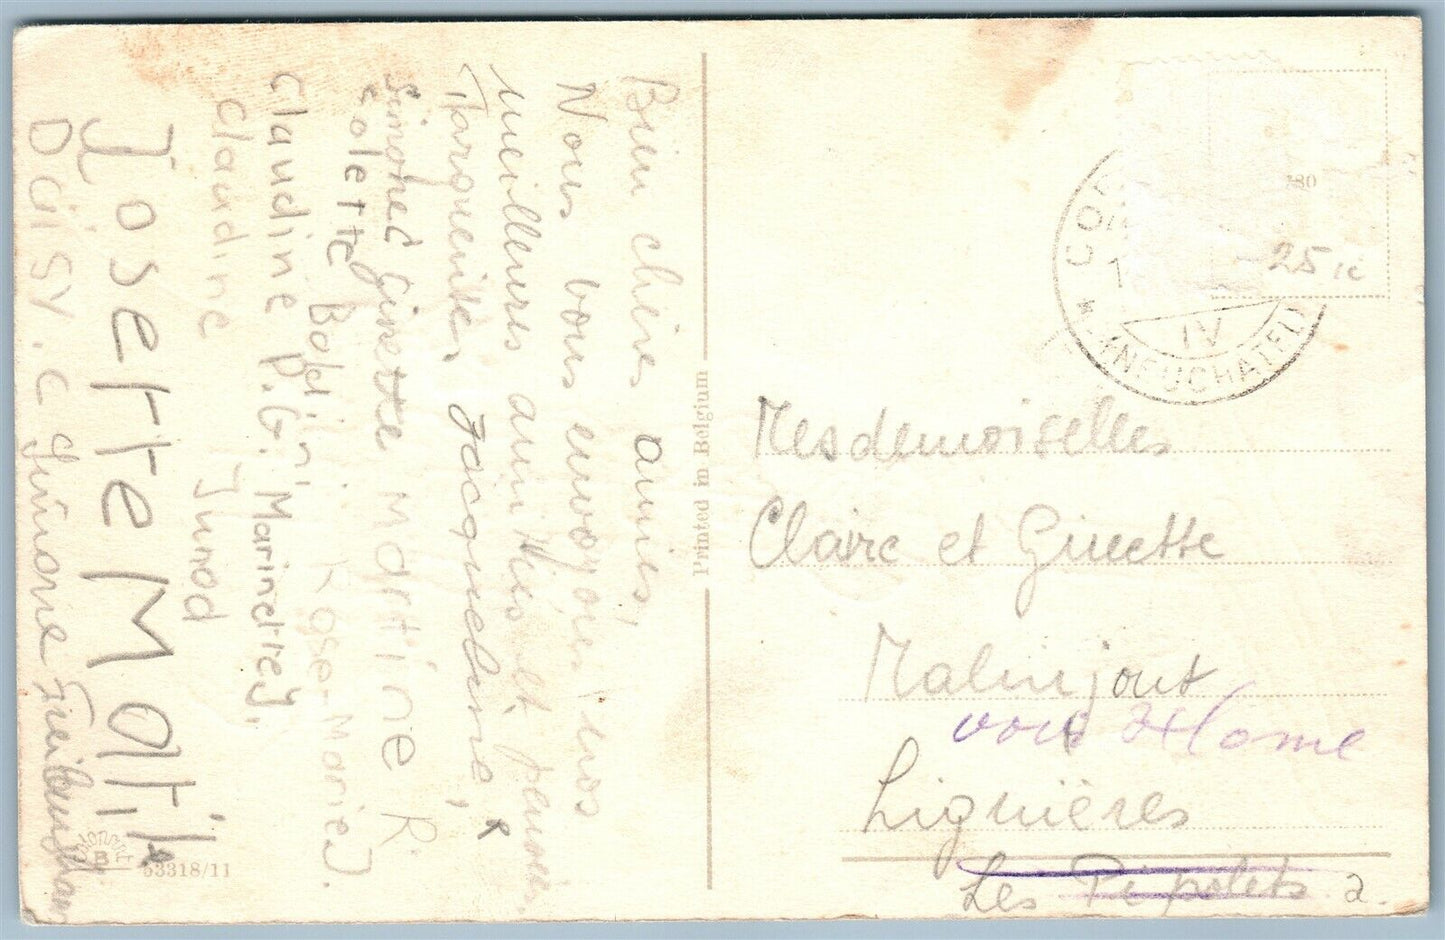 Bien chères amies,
Nous vous envoyons nos
meilleures amitiés et pensées.
Marguerite, Jacqueline, R
Simone C Ginette Martine R.
Colette Boldini Rose-Marie J.
Claudine P.G. Marinette J.
Claudine Junod
Josette Matile
Daisy. C Simone
Printed in Belgium
53318/11
B
780
25 ic
IV
(NEUCHATEL)
Mesdemoiselles
Claire et Ginette
Malinjoud
Home
Lignières
Les Pipolets 2.